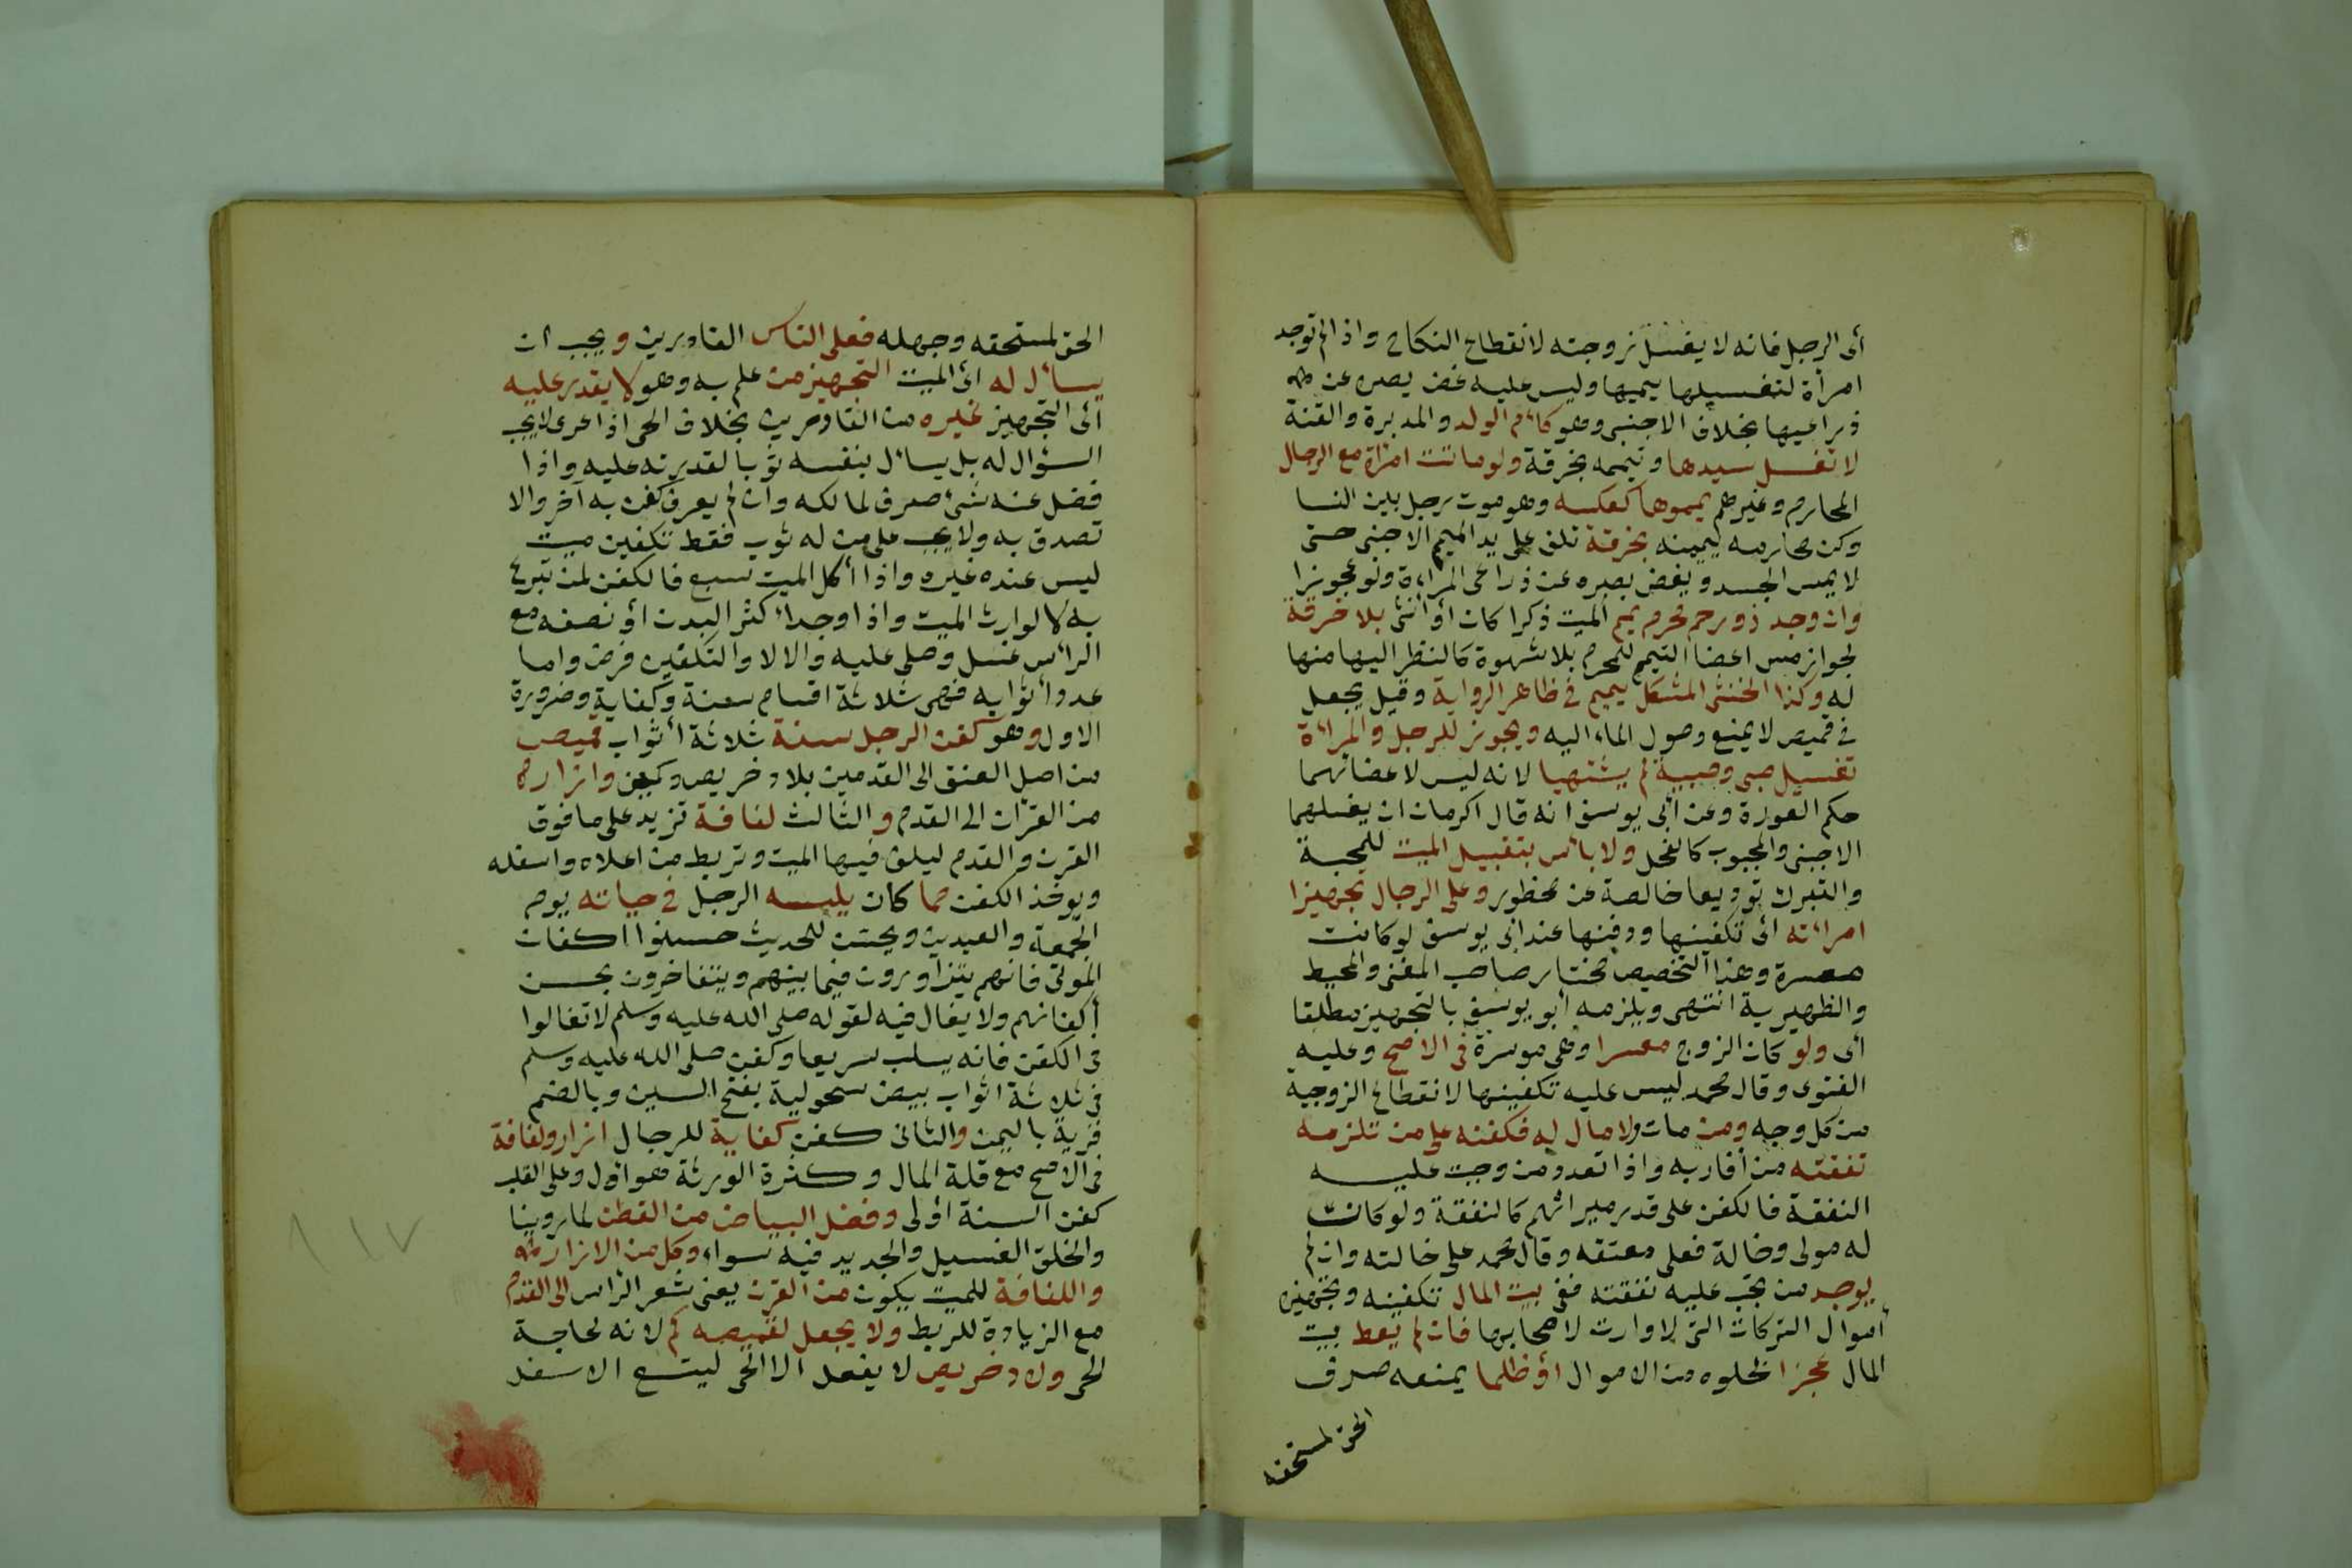 أى الرجل فانه لا يغسل زوجته لانقطاع النكاح واذا لم توجد
امرأة لتغسيلها ييممها وليس عليه غض بصره عن
ذراعيها بخلاف الاجنبى وهو كأم الولد والمدبرة والقنة
لا تغسل سيدها وتيممه بخرقة ولو ماتت امرأة مع الرجال
المحارم وغيرهم يمموها كعكسه وهو موت رجل بين النسا
وكن محارمه ييممنه بخرقة تلف على يد الميمم الاجنبى حتى
لا يمس الجسد ويغض بصره عن ذراعى المراءة ولو عجوزا
وان وجد ذو رحم محرم يمم الميت ذكرا كان أو أنثى بلا خرقة
لجواز مس اعضا التيمم للمحرم بلا شهوة كالنظر اليها منها
له وكذا الخنثى المشكل ييمم فى ظاهر الرواية وقيل يجعل
فى قميص لا يمنع وصول الماء اليه ويجوز للرجل والمراءة
تغسيل صبى وصبية لم يشتهيا لانه ليس لاعضائهما
حكم العورة وعن أبى يوسف انه قال اكره ان يغسلهما
الاجنبى والمجبوب كالفحل ولا بأس بتقبيل الميت للمحبة
والتبرك توديعا خالصة عن محظور وعلى الرجال تجهيزا
امراءته أى تكفينها ودفنها عند ابى يوسف لو كانت
معسرة وهذا التخصيص مختار صاحب المغنى والمحيط
والظهيرية انتهى ويلزمه أبو يوسف بالتجهيز مطلقا
أى ولو كان الزوج معسرا وهى موسرة فى الاصح وعليه
الفتوى وقال محمد ليس عليه تكفينها لانقطاع الزوجية
من كل وجه ومن مات ولا مال له فكفنه على من تلزمه
نفقته من أقاربه واذا تعدد من وجبت عليه
النفقة فالكفن على قدر ميراثهم كالنفقة ولو كانت
له مولى وخالة فعلى معتقه وقال محمد على خالته وان لم
يوجد من تجب عليه نفقته ففى بيت المال تكفينه وتجهيزه
أموال التركات التى لا وارث لاصحابها فان لم يعط بيت
المال عجزا لخلوه من الاموال أو ظلما يمنعه صرف
الحق لمستحقه
الحق لمستحقه وجهله فعلى الناس القادرين ويجب ان
يسأل له أى الميت التجهيز من علم به وهو لا يقدر عليه
أى التجهيز غيره من القادرين بخلاف الحى اذا عرى لا يجب
السؤال له بل يسأل بنفسه ثوبا لقدرته عليه واذا
فضل عنه شئ صرف لمالكه وان لم يعرف كفن به آخر والا
تصدق به ولا يجب على من له ثوب فقط تكفين ميت
ليس عنده غيره واذا أكل الميت سبع فالكفن لمن تبرع
به لا لوارث الميت واذا وجد أكثر البدن أو نصفه مع
الرأس غسل وصلى عليه والا لا والتكفين فرض واما
عدد أثوابه فهى ثلاثة اقسام سنة وكفاية وضرورة
الاول وهو كفن الرجل سنة ثلاثة أثواب قميص
من اصل العنق الى القدمين بلا دخريص وكمين وازار
من القرن الى القدم والثالث لفافة تزيد على ما فوق
القرن والقدم ليلف فيها الميت وتربط من اعلاه واسفله
ويوخذ الكفن مما كان يلبسه الرجل فى حياته يوم
الجمعة والعيدين ويحسن للحديث حسنوا اكفان
الموتى فانهم يتزاورون فيما بينهم ويتفاخرون بحسن
أكفانهم ولا يغال فيه لقوله صلى الله عليه وسلم لا تغالوا
فى الكفن فانه يسلب سريعا وكفن صلى الله عليه وسلم
فى ثلاثة اثواب بيض سحولية بفتح السين وبالضم
قرية باليمن والثانى كفن كفاية للرجال ازار ولفافة
فى الاصح مع قلة المال وكثرة الورثة هو اولى وعلى القلب
كفن السنة أولى وفضل البياض من القطن لما روينا
والخلق الغسيل والجديد فيه سواء وكل من الازار
واللفافة للميت يكون من القرن يعنى شعر الرأس الى القدم
مع الزيادة للربط ولا يجعل لقميصه كم لانه لحاجة
الحى ولا دخريص لا يفعل الا الحى ليتسع الاسفل
١١٧